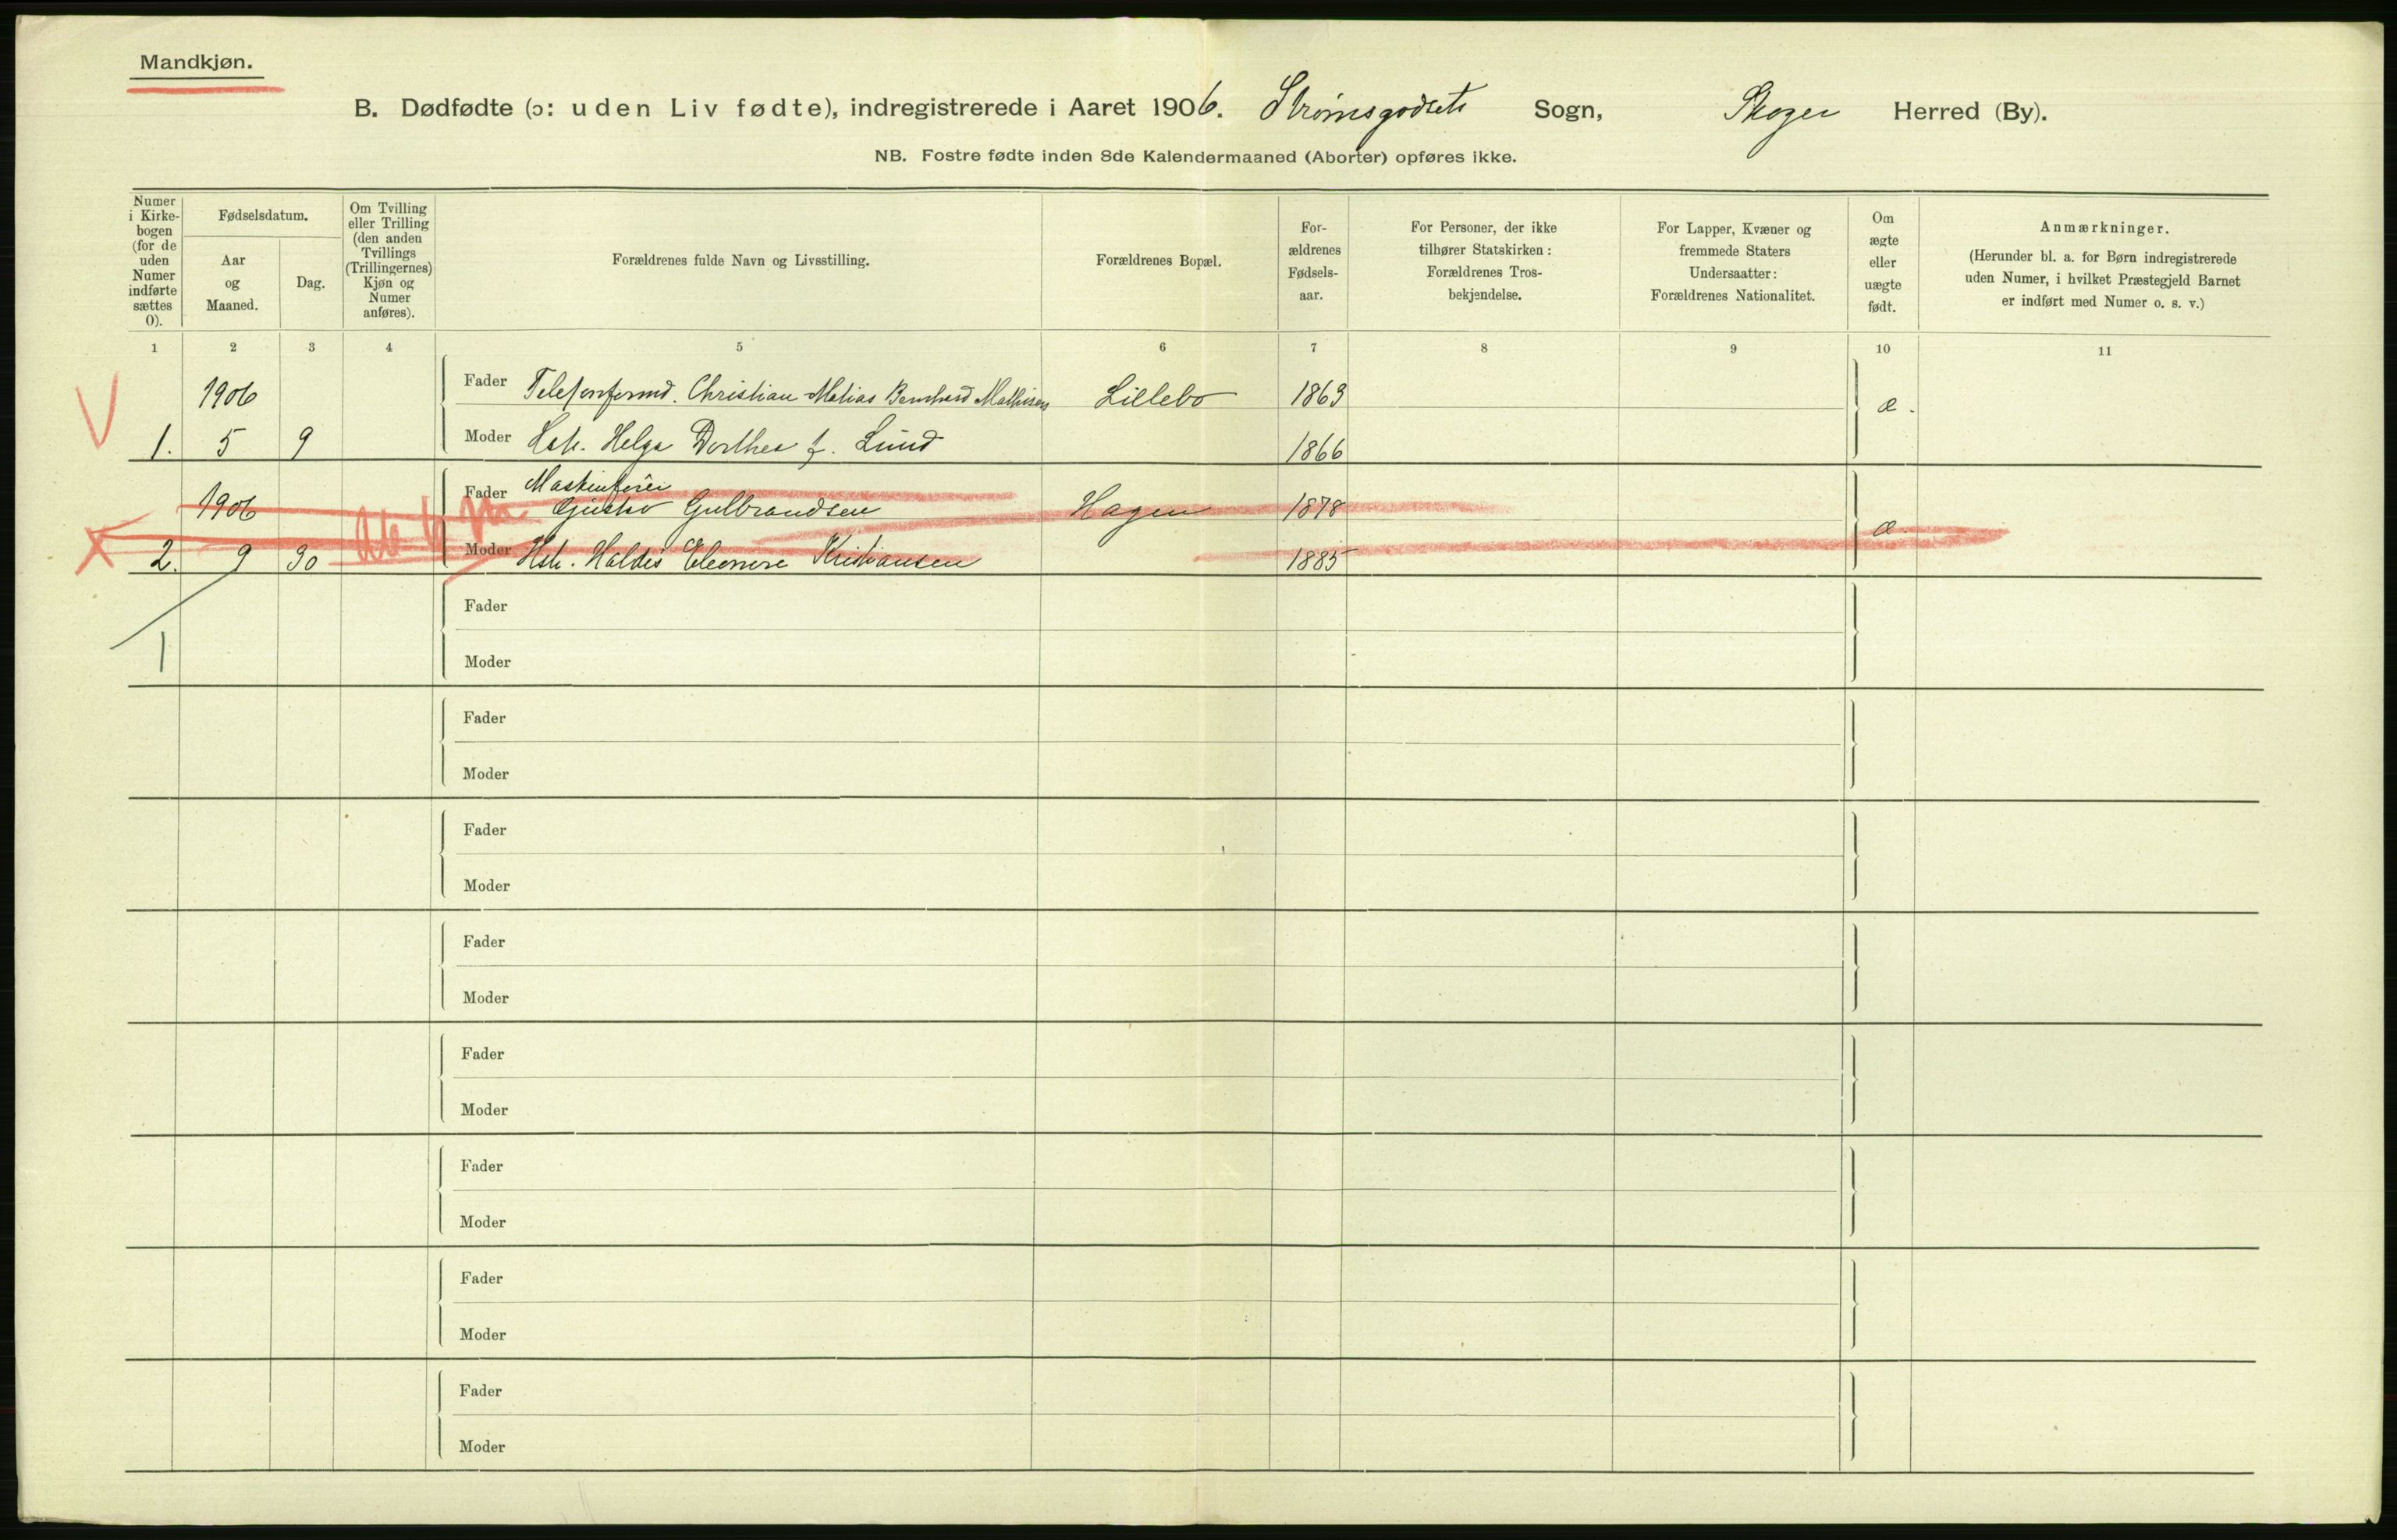 Mandkjøn.
B. Dødfødte (ɔ: uden Liv fødte), indregistrerede i Aaret 1906. Strømsgodsets Sogn, Skoger Herred (By).
NB. Fostre fødte inden 8de Kalendermaaned (Aborter) opføres ikke.
Numer i Kirkebogen (for de uden Numer indførte sættes 0).
Fødselsdatum.
Aar og Maaned.
Dag.
Om Tvilling eller Trilling (den anden Tvillings (Trillingernes) Kjøn og Numer anføres).
Forældrenes fulde Navn og Livsstilling.
Forældrenes Bopæl.
Forældrenes Fødselsaar.
For Personer, der ikke tilhører Statskirken: Forældrenes Trosbekjendelse.
For Lapper, Kvæner og fremmede Staters Undersaatter: Forældrenes Nationalitet.
Om ægte eller uægte født.
Anmærkninger. (Herunder bl. a. for Børn indregistrerede uden Numer, i hvilket Præstegjeld Barnet er indført med Numer o. s. v.)
1 2 3 4 5 6 7 8 9 10 11
1906 Fader Telefonformd. Christian Matias Bernhard Mathisen Lillebo 1863 æ.
1. 5 9 Moder Hstr. Helga Dorthea f. Lund 1866
Maskinfører
1906 Fader Gustav Gulbrandsen Hagen 1878 æ
2. 9 30 Moder Hstr. Haldis Eleonore Kristiansen 1885
Fader
1 Moder
Fader
Moder
Fader
Moder
Fader
Moder
Fader
Moder
Fader
Moder
Fader
Moder
Fader
Moder